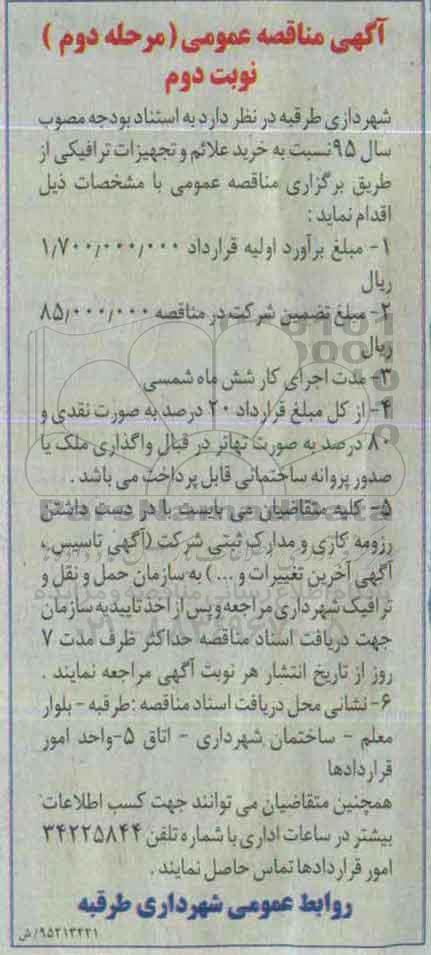 آگهی مناقصه عمومی (مرحله دوم )
نوبت دوم
شهرداری طرقبه در نظر دارد به استناد بودجه مصوب
سال ۹۵ نسبت به خرید علائم و تجهیزات ترافیکی از
طریق برگزاری مناقصه عمومی با مشخصات ذیل
اقدام نماید :
۱- مبلغ برآورد اولیه قرارداد ۱/۷۰۰/۰۰۰/۰۰۰
ریال
۲- مبلغ تضمین شرکت در مناقصه ۸۵/۰۰۰/۰۰۰
ریال
۳- مدت اجرای کار شش ماه شمسی
۴- از کل مبلغ قرارداد ۲۰ درصد به صورت نقدی و
۸۰ درصد به صورت تهاتر در قبال واگذاری ملک یا
صدور پروانه ساختمانی قابل پرداخت می باشد .
۵- کلیه متقاضیان می بایست با در دست داشتن
رزومه کاری و مدارک ثبتی شرکت (آگهی تاسیس ،
آگهی آخرین تغییرات و ... ) به سازمان حمل و نقل و
ترافیک شهرداری مراجعه و پس از اخذ تاییدیه سازمان
جهت دریافت اسناد مناقصه حداکثر ظرف مدت ۷
روز از تاریخ انتشار هر نوبت آگهی مراجعه نمایند .
۶- نشانی محل دریافت اسناد مناقصه : طرقبه - بلوار
معلم - ساختمان شهرداری - اتاق ۵-واحد امور
قراردادها
همچنین متقاضیان می توانند جهت کسب اطلاعات
بیشتر در ساعات اداری با شماره تلفن ۳۴۲۲۵۸۴۴
امور قراردادها تماس حاصل نمایند .
روابط عمومی شهرداری طرقبه
۹۵۲۱۳۴۲۱/ش
ParsNamadData